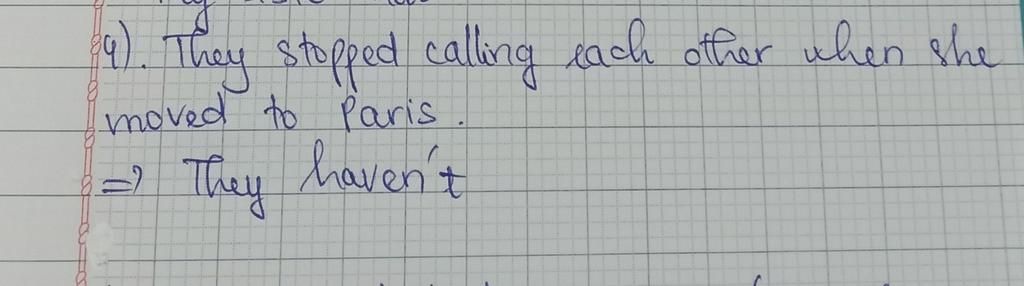 9). They stopped calling each other when she
moved to Paris.
=> They haven't